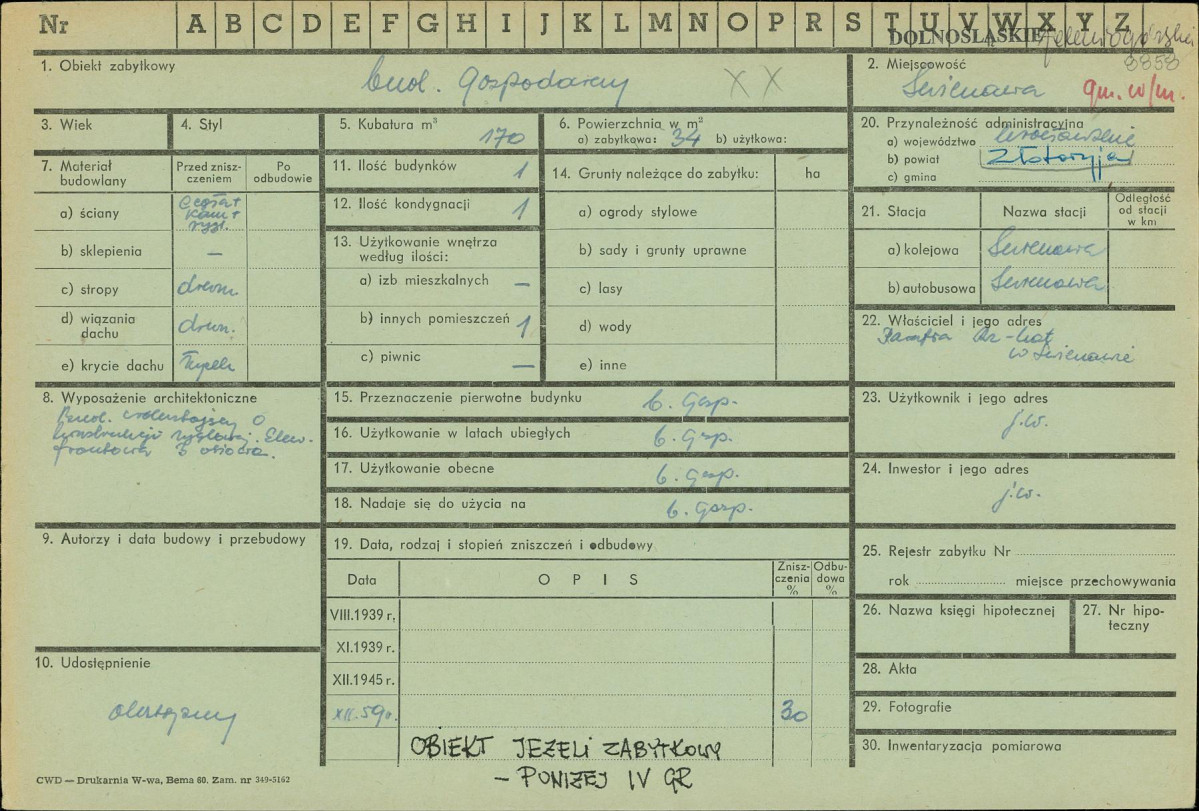 Nr A B C D E F G H I J K L M N O P R S T U V W X Y Z
DOLNOŚLĄSKIE Jeleniogórskie
8858
1. Obiekt zabytkowy
bud. Gospodarczy X X
2. Miejscowość
gm. w/m.
3. Wiek
4. Styl
5. Kubatura m³
170
6. Powierzchnia w m²
a) zabytkowa: 34 b) użytkowa:
20. Przynależność administracyjna
a) województwo wrocławskie
b) powiat Złotoryja
c) gmina
7. Materiał budowlany
Przed zniszczeniem
Po odbudowie
a) ściany
cegła+
kam+
rygl.
b) sklepienia —
c) stropy drewn.
d) wiązania dachu drewn.
e) krycie dachu łupek
11. Ilość budynków 1
12. Ilość kondygnacji 1
13. Użytkowanie wnętrza
według ilości:
a) izb mieszkalnych —
b) innych pomieszczeń 1
c) piwnic —
14. Grunty należące do zabytku: ha
a) ogrody stylowe
b) sady i grunty uprawne
c) lasy
d) wody
e) inne
21. Stacja
Nazwa stacji
Odległość
od stacji
w km
a) kolejowa
b) autobusowa
22. Właściciel i jego adres
Parafia Rz-kat
w
8. Wyposażenie architektoniczne
Bud. wolnostojący o
konstrukcji ryglowej. Elew.
frontowa 3 osiowa.
15. Przeznaczenie pierwotne budynku b. gosp.
16. Użytkowanie w latach ubiegłych b. gosp.
17. Użytkowanie obecne b. gosp.
18. Nadaje się do użycia na b. gosp.
23. Użytkownik i jego adres
j.w.
24. Inwestor i jego adres
j.w.
9. Autorzy i data budowy i przebudowy
19. Data, rodzaj i stopień zniszczeń i odbudowy
Data
OPIS
Zniszczenia
%
Odbudowa
%
VIII.1939 r.
XI.1939 r.
XII.1945 r.
XII.59r. 30
OBIEKT JEŻELI ZABYTKOWY
– PONIŻEJ IV GR
25. Rejestr zabytku Nr
rok miejsce przechowywania
26. Nazwa księgi hipotecznej
27. Nr hipoteczny
28. Akta
29. Fotografie
30. Inwentaryzacja pomiarowa
10. Udostępnienie
dostępny
CWD — Drukarnia W-wa, Bema 60. Zam. nr 349-5162